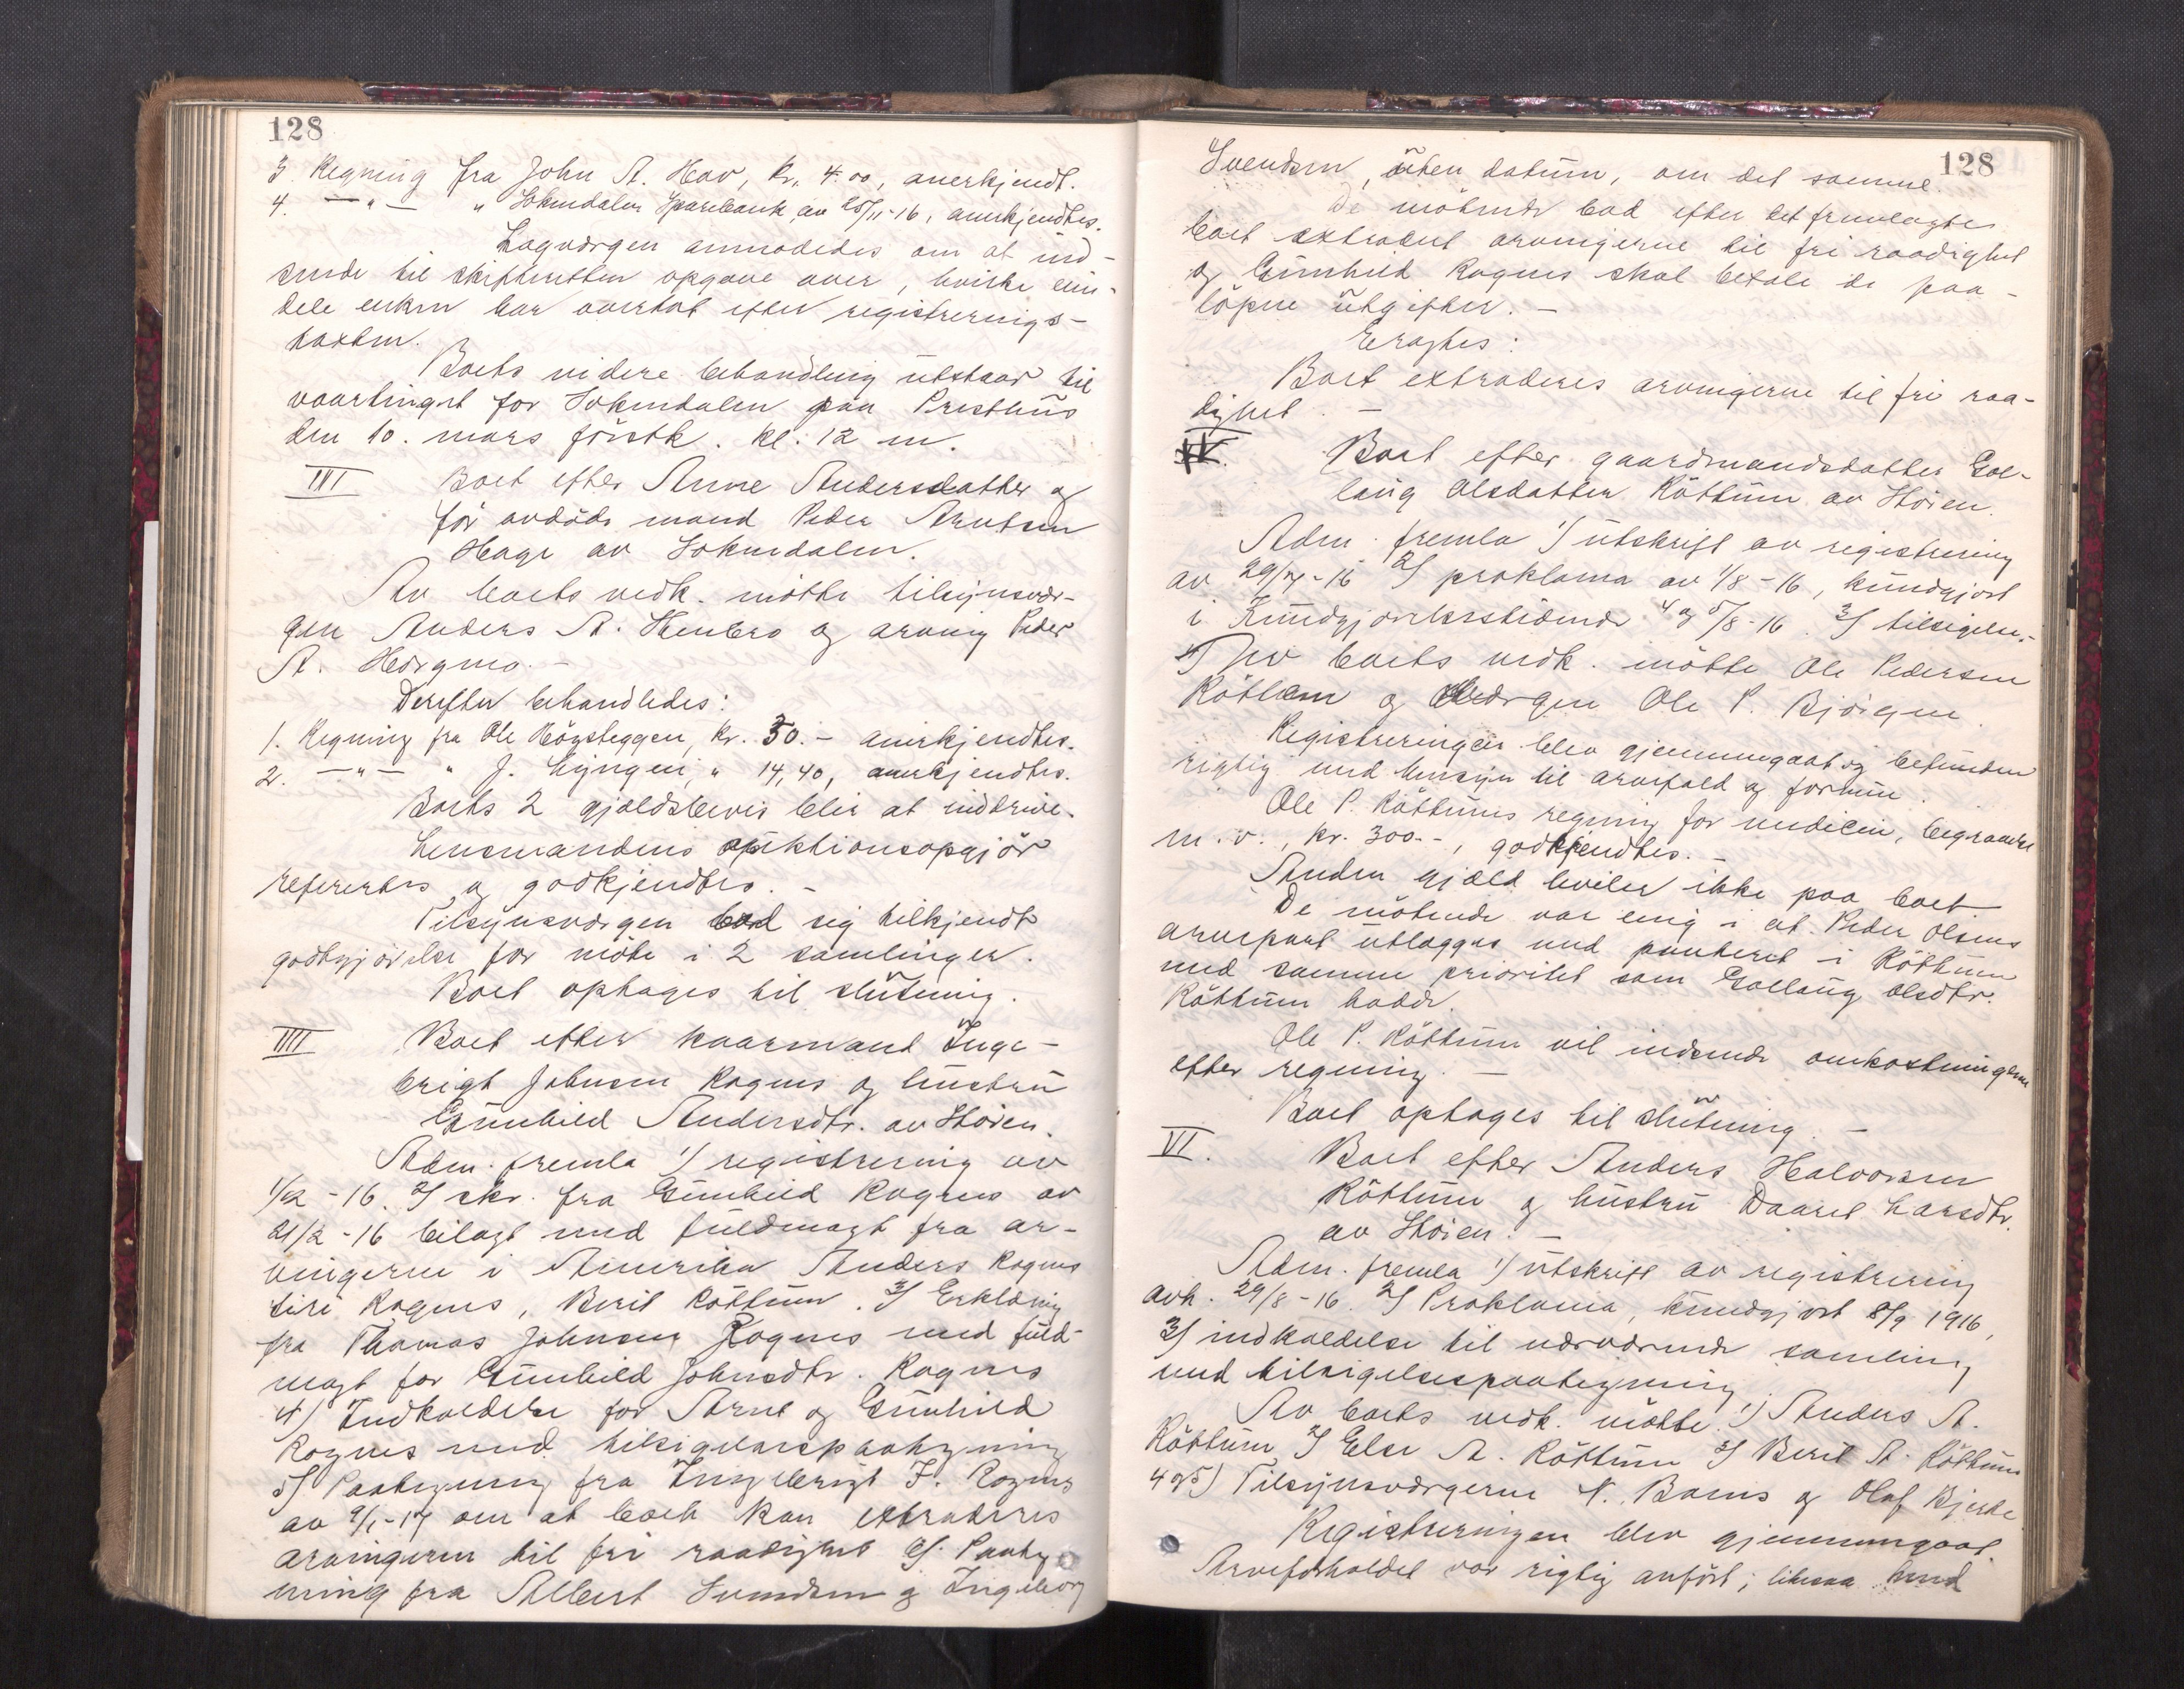 128
3. Regning fra John A. Hov, kr. 4.00, anerkjendt.
4. —"— " Soknedalen Sparebank av 25/11-16, anerkjendtes.
Lagværgen anmodedes om at ind-
sende til skifteretten opgave over, hvilke ein-
dele enken har overtat efter registrerings-
taxten.
Boets videre behandling utstaar til
vaartinget for Soknedalen paa Presthus
den 10. mars förstk. kl. 12 m.
III Boet efter Anne Andersdatter og
för avdöde mand Peder Arntsen
Hage av Soknedalen.
Av boets vedk. mötte tilsynsvær-
gen Anders A. Stenbro og arving Peder
A. Horgmo. -
Derefter behandledes:
1. Regning fra Ole Högsteggen, kr. 50.- anerkjendtes.
2. —"— " J. Lyngen, " 14,40, anerkjendtes.
Boets 2 gjældsbevis blir at inddrive.
Lensmandens auktionsopgjör
refererte og godkjendtes. -
Tilsynsværgen bad sig tilkjendt
godtgjörelse for möte i 2 samlinger.
Boet optages til slutning.
IIII Boet efter kaarmand Inge-
brigt Johnsen Rognes og hustru
Gunhild Andersdtr. av Stören.
Adm. fremla 1/ registrering av
1/2 -16. 2/ skr. fra Gunhild Rognes av
21/2 -16 bilagt med fuldmagt fra ar-
vingerne i Amerika Anders Rognes
Siri Rognes, Berit Röttum. 3/ Erklæring
fra Thomas Johnsen Rognes med fuld-
magt for Gunhild Johnsdtr. Rognes
4) Indkaldelse for Arnt og Gunhild
Rognes med tilsigelsespaategning
5/ Paategning fra Ingebrigt J. Rognes
av 9/1-17 om at boet kan extraderes
arvingerne til fri raadighet 6/. Paateg
ning fra Albert Svendsen og Ingeborg
128
Svendsen, uten datum, om det samme.
De mötende bad efter det fremlagte
boet extradert arvingerne til fri raadighet
og Gunhild Rognes skal betale de paa-
löpne utgifter. -
Eragtes:
Boet extraderes arvingerne til fri raa-
dighet. -
V. Boet efter gaardmandsdatter Gol-
laug Olsdatter Röttum av Stören.
Adm. fremla 1/ utskrift av registrering
av 29/7-16 2/ proklama av 1/8-16, kundgjort
i Kundgjörelsestidende 4 og 5/8-16. 3/ tilsigelse.-
Av boets vedk. mötte Ole Pedersen
Röttum og værgen Ole P. Björgen.
Registreringen blev gjennemgaat og befunden
rigtig med hensyn til arvefald og formue.
Ole P. Röttums regning for medicin, begravelse
m.v., kr. 300.-, godkjendtes. -
Anden gjæld hviler ikke paa boet.
De mötende var enig i at Peder Olsens
arvepart utlægges med panteret i Röttum
med samme prioritet som Gollaug Olsdtr.
Röttum hadde.
Ole P. Röttum vil indsende omkostningerne
efter regning. -
Boet optages til slutning. -
VI. Boet efter Anders Halvorsen
Röttum og hustru Daaret Larsdtr.
av Stören. -
Adm. fremla 1/ utskrift av registrering
avh. 29/8-16. 2/ Proklama, kundgjort 8/9 1916,
3/ indkaldelse til nærværende samling
med tilsigelsespaategning.
Av boets vedk. mötte 1) Anders A.
Röttum 2/ Else A. Röttum 3/ Berit A. Röttum
4 og 5) Tilsynsværgerne N. Bones og Olaf Bjerke
Registreringen blev gjennemgaat.
Arveforholdet var rigtig anfört; likesaa med